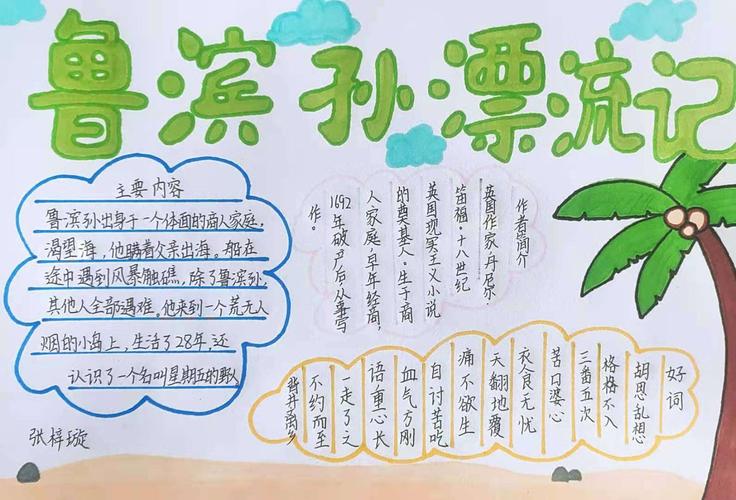 鲁滨孙漂流记
主要内容
鲁滨孙出身于一个体面的商人家庭,
渴望海,他瞒着父亲出海。船在
途中遇到风暴触礁,除了鲁滨孙
其他人全部遇难。他来到一个荒无人
烟的小岛上,生活了28年,还
认识了一个名叫星期五的野人
作者简介
英国作家,丹尼尔·
笛福·十八世纪
英国现实主义小说
的奠基人·生于商
人家庭,早年经商,
1692年破产后,从事写
作。
好词
胡思乱想
格格不入
三番五次
苦口婆心
衣食无忧
天翻地覆
痛不欲生
自讨苦吃
血气方刚
语重心长
一走了之
不约而至
背井离乡
张梓璇